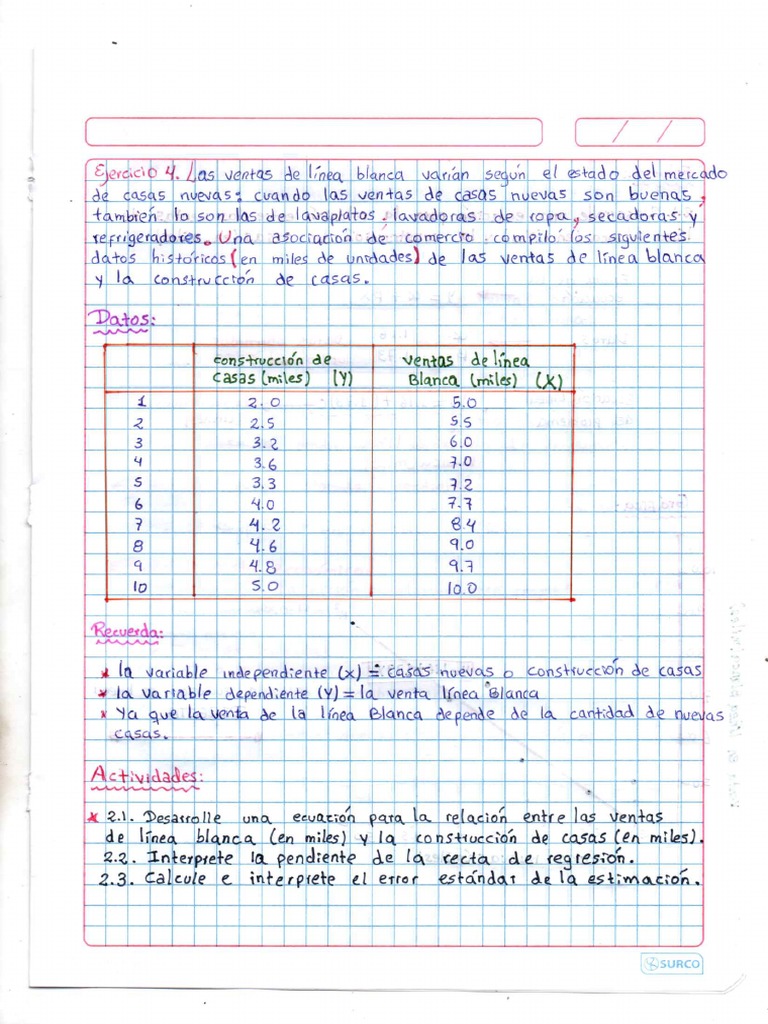 / /
Ejercicio 4. Las ventas de línea blanca varían según el estado del mercado
de casas nuevas: cuando las ventas de casas nuevas son buenas,
también lo son las de lavaplatos, lavadoras de ropa, secadoras y
refrigeradores. Una asociación de comercio compiló los siguientes
datos históricos (en miles de unidades) de las ventas de línea blanca
y la construcción de casas.
Datos:
construcción de casas (miles) (Y) ventas de línea Blanca (miles) (X)
1 2.0 5.0
2 2.5 5.5
3 3.2 6.0
4 3.6 7.0
5 3.3 7.2
6 4.0 7.7
7 4.2 8.4
8 4.6 9.0
9 4.8 9.7
10 5.0 10.0
Recuerda:
* la variable independiente (x) = casas nuevas o construcción de casas
* la variable dependiente (Y) = la venta línea Blanca
* Ya que la venta de la línea Blanca depende de la cantidad de nuevas
casas.
Actividades:
* 2.1. Desarrolle una ecuación para la relación entre las ventas
de línea blanca (en miles) y la construcción de casas (en miles).
2.2. Interprete la pendiente de la recta de regresión.
2.3. Calcule e interprete el error estándar de la estimación.
SURCO